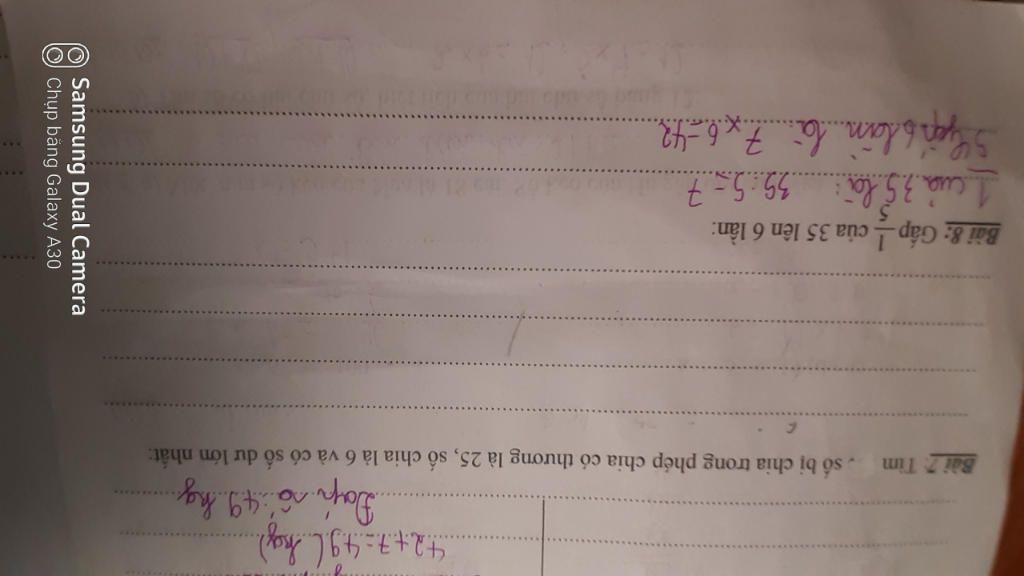 42+7=49 (kg)
Đáp số: 49 kg
Bài 7: Tìm số bị chia trong phép chia có thương là 25, số chia là 6 và có số dư lớn nhất:
Bài 8: Gấp 1/5 của 35 lên 6 lần:
1/5 của 35 là: 35:5=7
gấp 6 lần là: 7 x 6=42
Samsung Dual Camera
Chụp bằng Galaxy A30